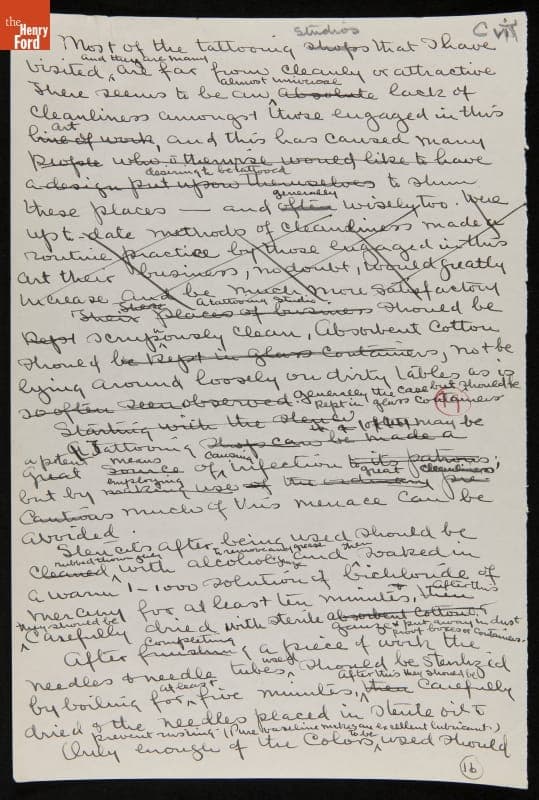 the Henry Ford
studios
C VII
Most of the tattooing shops that I have
and there are many
visited, are far from cleanly or attractive
almost universal
There seems to be an absolute lack of
cleanliness amongst those engaged in this
art
line of work, and this has caused many
people who otherwise would like to have
desiring to be tattooed
a design put upon themselves to shun
generally
these places — and often wisely too. Were
up to-date methods of cleanliness made a
routine practice by those engaged in this
art their business, no doubt, would greatly
increase and be much more satisfactory
These A tattooing studio
Their places of business should be
kept scrupulously clean, Absorbent Cotton
should be kept in glass containers, not be
lying around loosely on dirty tables as is
so often seen observed. generally the case but should be
kept in glass containers
Starting with the stencil
tattooing shops can be made a
may be
a potent means causing
great source of infection to its patrons;
employing great cleanliness,
but by making use of the ordinary pre
cautions much of this menace can be
avoided.
Stencils after being used should be
to remove any grease then
cleaned with alcohol and soaked in
a warm 1-1000 solution of bichloride of
after this
mercury for at least ten minutes, then
they should be
carefully dried with sterile absorbent cotton
gauze & put away in dust
proof boxes or containers.
completing
After finishing a piece of work the
used
needles & needle tubes should be sterilized
at least After this they should be
by boiling for five minutes, then carefully
dried & the needles placed in sterile oil to
prevent rusting. (Pure vaseline makes an excellent lubricant.)
to be
Only enough of the colors used should
16